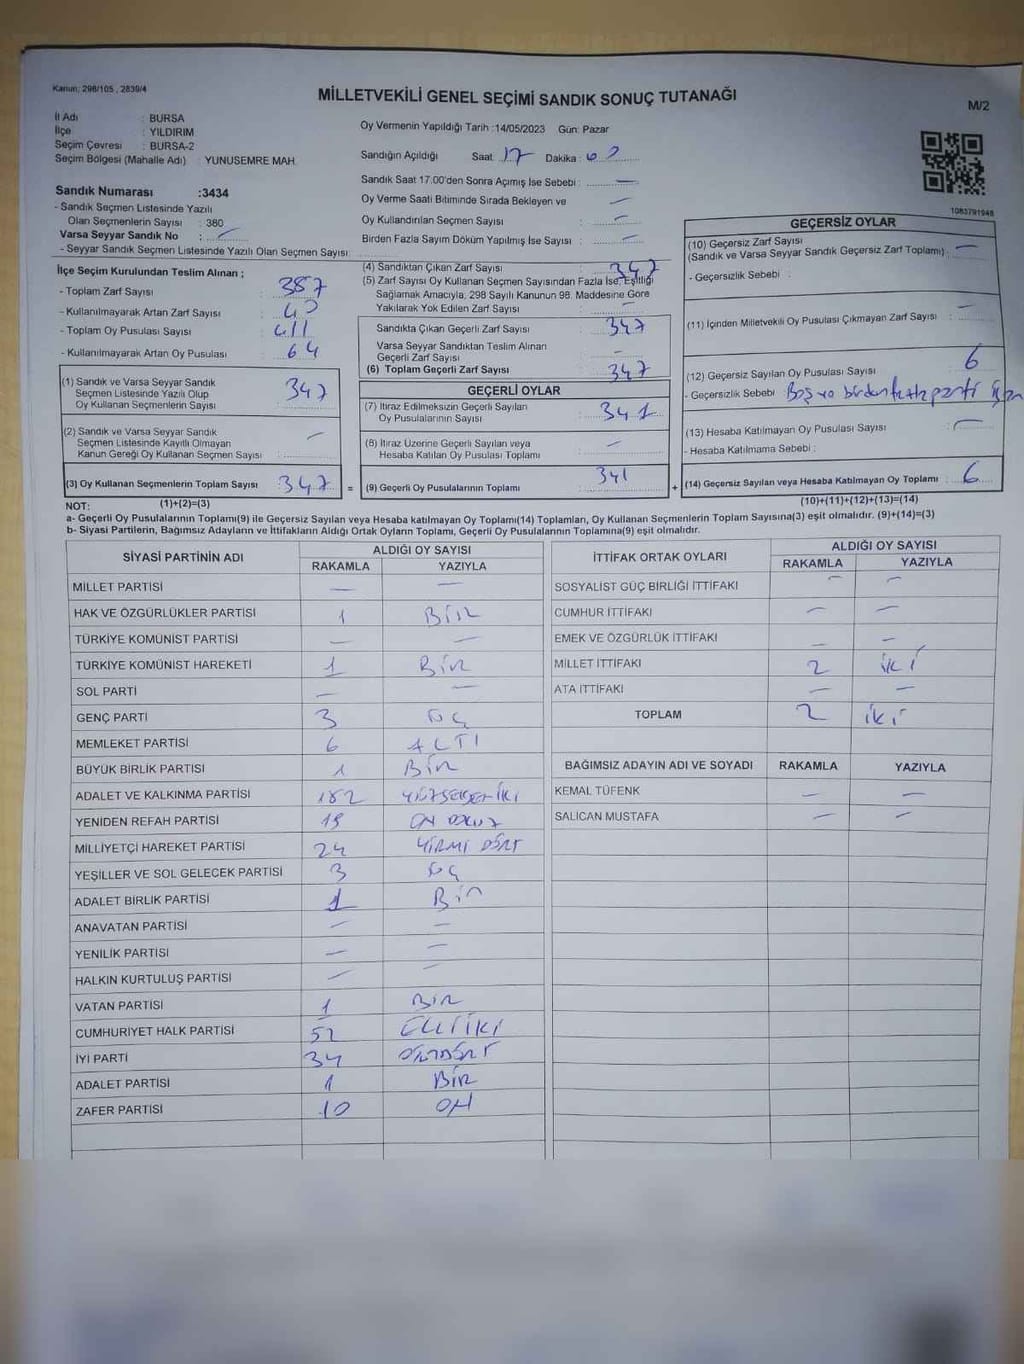 Kanun: 298/105 , 2839/4
MİLLETVEKİLİ GENEL SEÇİMİ SANDIK SONUÇ TUTANAĞI
M/2
İl Adı : BURSA
İlçe : YILDIRIM
Seçim Çevresi : BURSA-2
Seçim Bölgesi (Mahalle Adı) : YUNUSEMRE MAH.
Oy Vermenin Yapıldığı Tarih :14/05/2023 Gün: Pazar
Sandığın Açıldığı Saat: 17 Dakika:
Sandık Saat 17.00'den Sonra Açımış İse Sebebi : —
Oy Verme Saati Bitiminde Sırada Bekleyen ve
Oy Kullandırılan Seçmen Sayısı : —
Birden Fazla Sayım Döküm Yapılmış İse Sayısı : —
1083791948
Sandık Numarası :3434
- Sandık Seçmen Listesinde Yazılı
Olan Seçmenlerin Sayısı : 380
Varsa Seyyar Sandık No : —
- Seyyar Sandık Seçmen Listesinde Yazılı Olan Seçmen Sayısı:
İlçe Seçim Kurulundan Teslim Alınan ;
- Toplam Zarf Sayısı : 387
- Kullanılmayarak Artan Zarf Sayısı :
- Toplam Oy Pusulası Sayısı : 411
- Kullanılmayarak Artan Oy Pusulası : 64
(1) Sandık ve Varsa Seyyar Sandık
Seçmen Listesinde Yazılı Olup
Oy Kullanan Seçmenlerin Sayısı : 347
(2) Sandık ve Varsa Seyyar Sandık
Seçmen Listesinde Kayıtlı Olmayan
Kanun Gereği Oy Kullanan Seçmen Sayısı : —
(3) Oy Kullanan Seçmenlerin Toplam Sayısı : 347 =
(1)+(2)=(3)
(4) Sandıktan Çıkan Zarf Sayısı : 347
(5) Zarf Sayısı Oy Kullanan Seçmen Sayısından Fazla İse, Eşitliği
Sağlamak Amacıyla, 298 Sayılı Kanunun 98. Maddesine Göre
Yakılarak Yok Edilen Zarf Sayısı : —
Sandıkta Çıkan Geçerli Zarf Sayısı : 347
Varsa Seyyar Sandıktan Teslim Alınan
Geçerli Zarf Sayısı : —
(6) Toplam Geçerli Zarf Sayısı : 347
GEÇERLİ OYLAR
(7) İtiraz Edilmeksizin Geçerli Sayılan
Oy Pusulalarının Sayısı : 341
(8) İtiraz Üzerine Geçerli Sayılan veya
Hesaba Katılan Oy Pusulası Toplamı : —
(9) Geçerli Oy Pusulalarının Toplamı : 341 +
GEÇERSİZ OYLAR
(10) Geçersiz Zarf Sayısı
(Sandık ve Varsa Seyyar Sandık Geçersiz Zarf Toplamı) : —
- Geçersizlik Sebebi :
(11) İçinden Milletvekili Oy Pusulası Çıkmayan Zarf Sayısı : —
(12) Geçersiz Sayılan Oy Pusulası Sayısı : 6
- Geçersizlik Sebebi : Boş ve birden fazla parti için
(13) Hesaba Katılmayan Oy Pusulası Sayısı : —
- Hesaba Katılmama Sebebi :
(14) Geçersiz Sayılan veya Hesaba Katılmayan Oy Toplamı : 6
(10)+(11)+(12)+(13)=(14)
NOT:
a- Geçerli Oy Pusulalarının Toplamı(9) ile Geçersiz Sayılan veya Hesaba katılmayan Oy Toplamı(14) Toplamları, Oy Kullanan Seçmenlerin Toplam Sayısına(3) eşit olmalıdır. (9)+(14)=(3)
b- Siyasi Partilerin, Bağımsız Adayların ve İttifakların Aldığı Ortak Oyların Toplamı, Geçerli Oy Pusulalarının Toplamına(9) eşit olmalıdır.
SİYASİ PARTİNİN ADI ALDIĞI OY SAYISI
RAKAMLA YAZIYLA
MİLLET PARTİSİ — —
HAK VE ÖZGÜRLÜKLER PARTİSİ 1 BİR
TÜRKİYE KOMÜNİST PARTİSİ — —
TÜRKİYE KOMÜNİST HAREKETİ 1 BİR
SOL PARTİ — —
GENÇ PARTİ 3 ÜÇ
MEMLEKET PARTİSİ 6 ALTI
BÜYÜK BİRLİK PARTİSİ 1 BİR
ADALET VE KALKINMA PARTİSİ 182 YÜZSEKSENİKİ
YENİDEN REFAH PARTİSİ 19 ON DOKUZ
MİLLİYETÇİ HAREKET PARTİSİ 24 YİRMİ DÖRT
YEŞİLLER VE SOL GELECEK PARTİSİ 3 ÜÇ
ADALET BİRLİK PARTİSİ 1 BİR
ANAVATAN PARTİSİ — —
YENİLİK PARTİSİ — —
HALKIN KURTULUŞ PARTİSİ — —
VATAN PARTİSİ 1 BİR
CUMHURİYET HALK PARTİSİ 52 ELLİİKİ
İYİ PARTİ 34
ADALET PARTİSİ 1 BİR
ZAFER PARTİSİ 10 ON
İTTİFAK ORTAK OYLARI ALDIĞI OY SAYISI
RAKAMLA YAZIYLA
SOSYALİST GÜÇ BİRLİĞİ İTTİFAKI — —
CUMHUR İTTİFAKI — —
EMEK VE ÖZGÜRLÜK İTTİFAKI — —
MİLLET İTTİFAKI 2 İKİ
ATA İTTİFAKI — —
TOPLAM 2 İKİ
BAĞIMSIZ ADAYIN ADI VE SOYADI RAKAMLA YAZIYLA
KEMAL TÜFENK — —
SALİCAN MUSTAFA — —